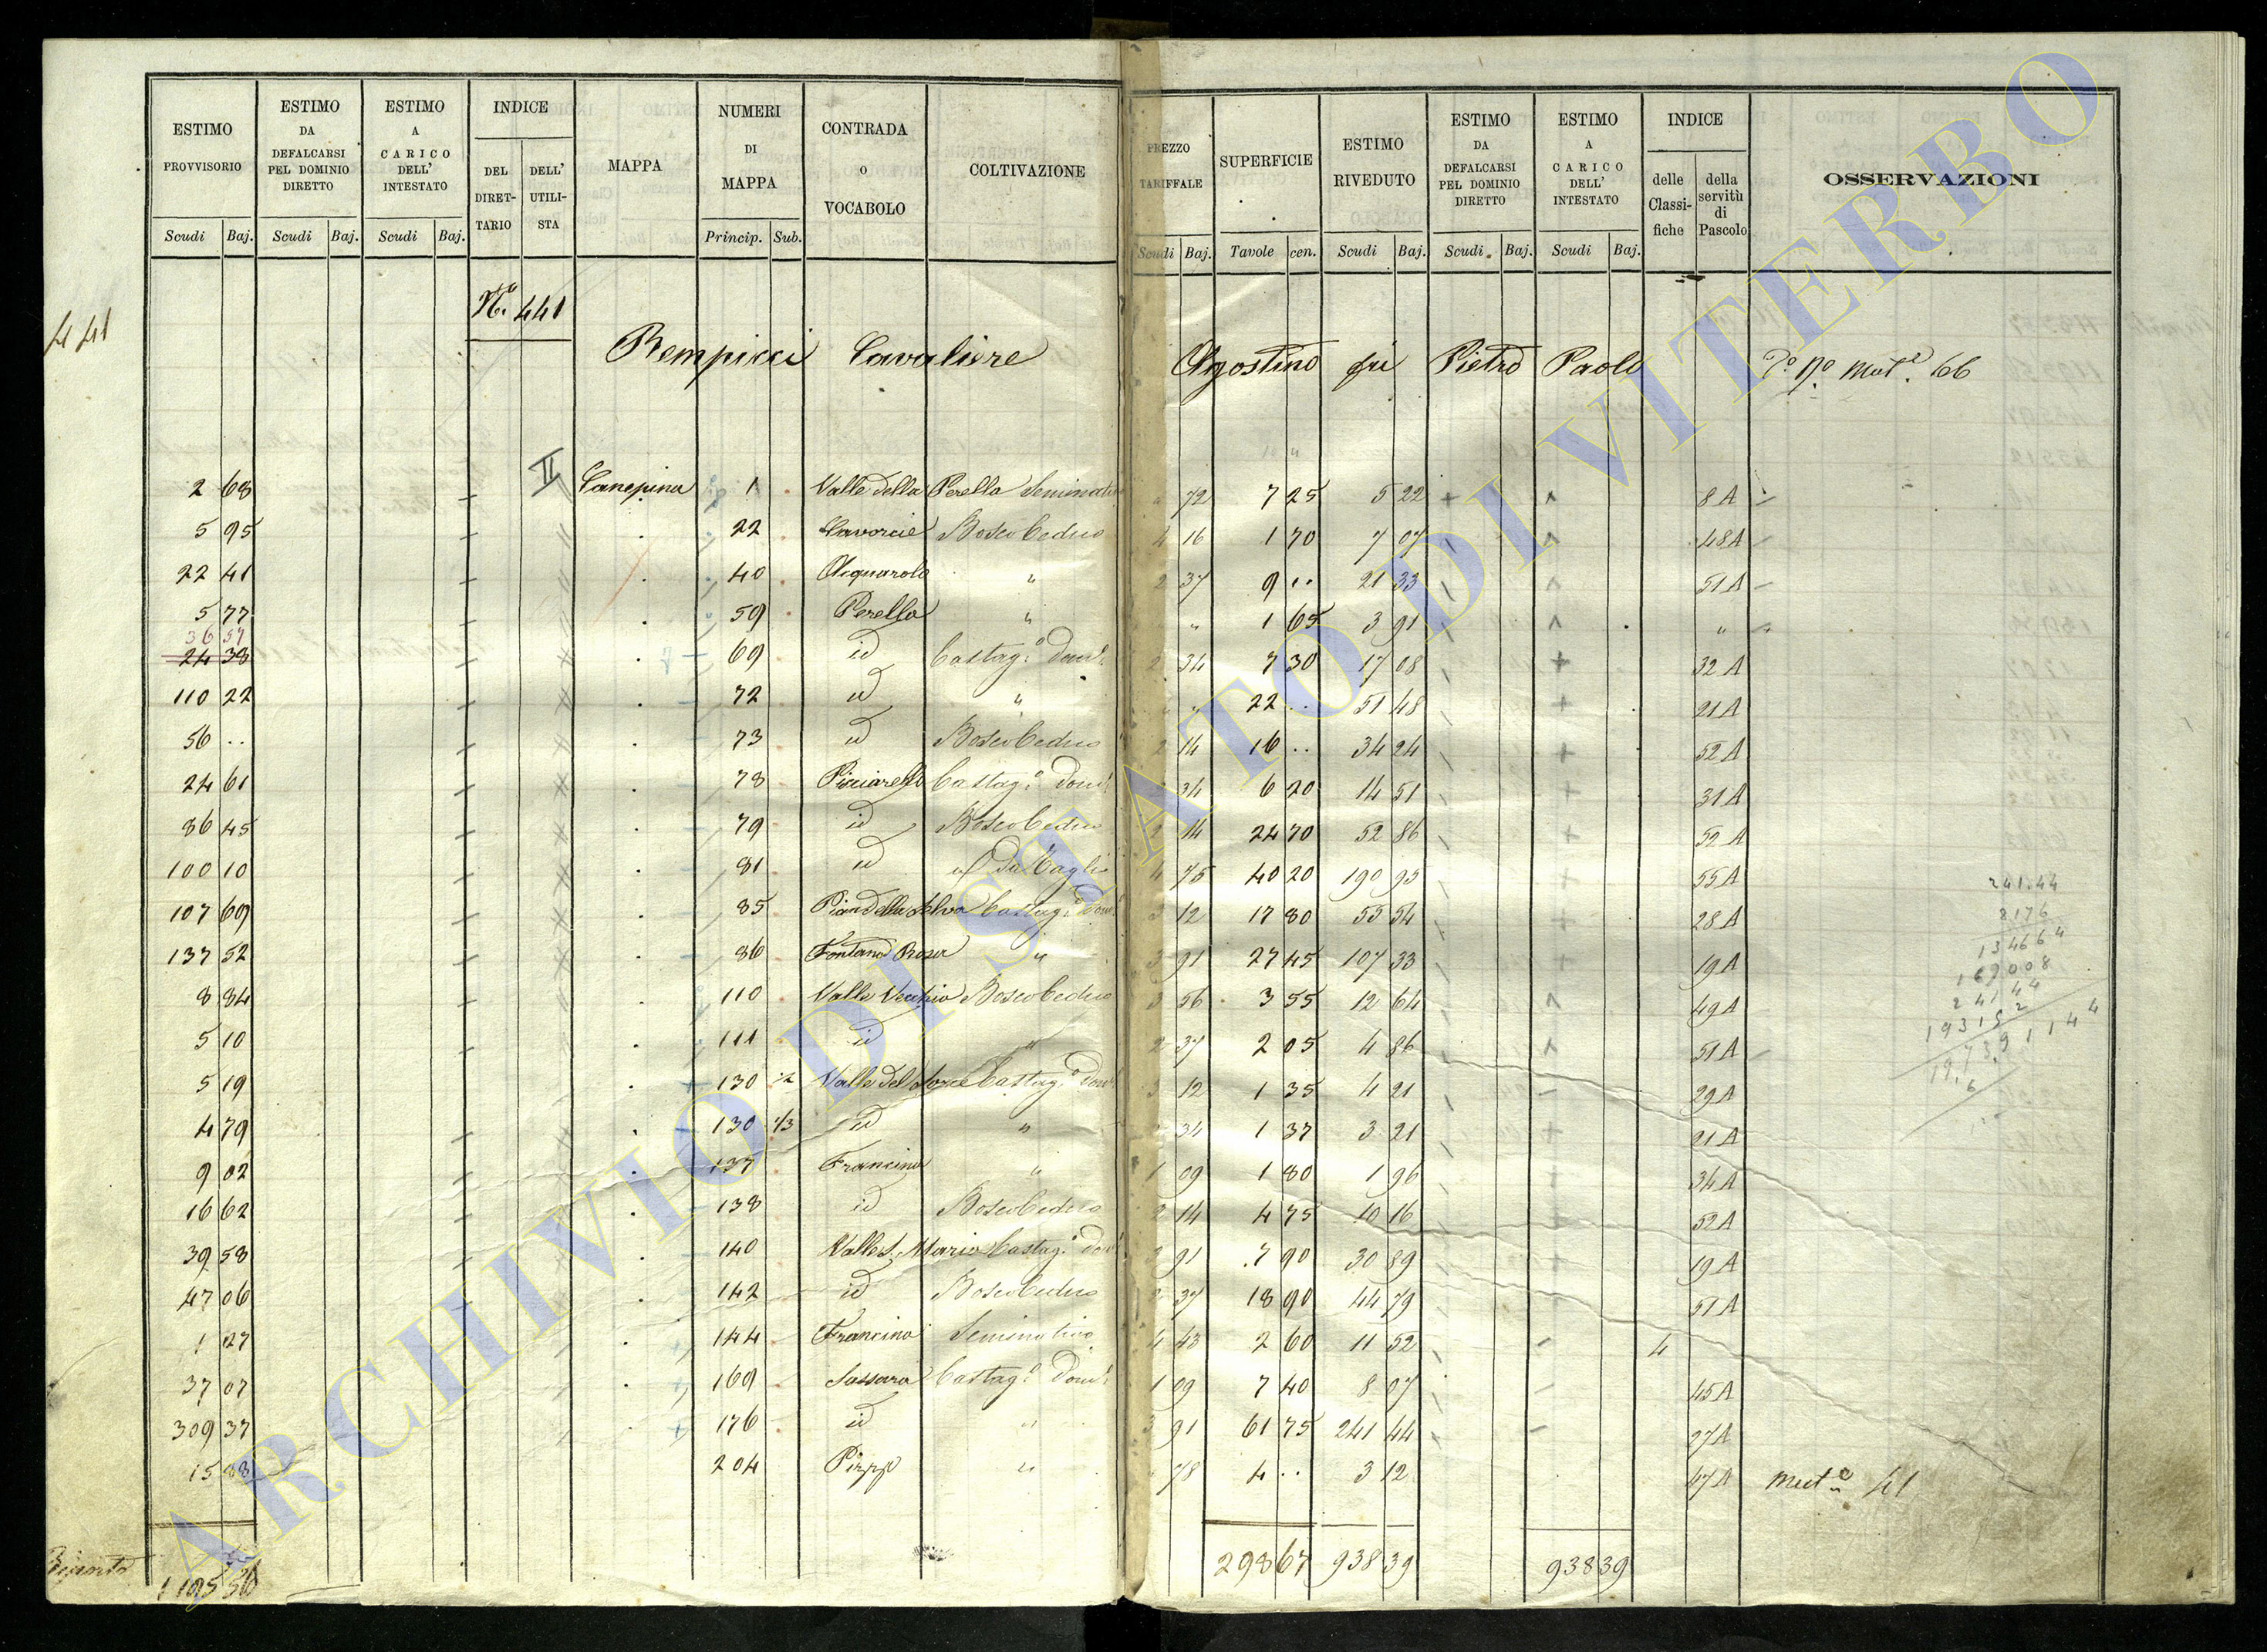 ESTIMO PROVVISORIO Scudi Baj.
ESTIMO DA DEFALCARSI PEL DOMINIO DIRETTO Scudi Baj.
ESTIMO A CARICO DELL' INTESTATO Scudi Baj.
INDICE DEL DIRET-TARIO DELL' UTILI-STA
MAPPA
NUMERI DI MAPPA Princip. Sub.
CONTRADA o VOCABOLO
COLTIVAZIONE
PREZZO TARIFFALE Scudi Baj.
SUPERFICIE Tavole cen.
ESTIMO RIVEDUTO Scudi Baj.
ESTIMO DA DEFALCARSI PEL DOMINIO DIRETTO Scudi Baj.
ESTIMO A CARICO DELL' INTESTATO Scudi Baj.
INDICE delle Classi-fiche della servitù di Pascolo
OSSERVAZIONI
441
No. 441
Rempicci Cavaliere Agostino fu Pietro Paolo
2 68 II Canepina 1 Valle della Perella Seminativo 72 7 25 5 22 8 A
5 95 22 Bosco Ceduo 4 16 1 70 7 07 48 A
22 41 40 Acquarolo " 2 37 9 .. 21 33 51 A
5 77 59 Perella " " 1 65 3 91 "
36 57
24 38 69 id Castag.o 2 34 7 30 17 08 32 A
110 22 72 id " " 22 .. 51 48 21 A
56 .. 73 id Bosco Ceduo 2 14 16 .. 34 24 52 A
24 61 78 Picciarella Castag.o 34 6 20 14 51 31 A
86 45 79 id Bosco Ceduo 2 14 24 70 52 86 52 A
100 10 81 id id Da Taglio 4 75 40 20 190 95 55 A
107 69 85 Pian della Selva Castag.o 3 12 17 80 55 54 28 A
137 52 86 Fontana " 3 91 27 45 107 33 19 A
8 84 110 Valle Vecchia Bosco Ceduo 3 56 3 55 12 64 49 A
5 10 111 id " 2 37 2 05 4 86 51 A
5 19 130 Castag.o 3 12 1 35 4 21 29 A
4 79 130 1/3 id " 2 34 1 37 3 21 21 A
9 02 137 Francino " 1 09 1 80 1 96 34 A
16 62 138 id Bosco Ceduo 2 14 4 75 10 16 52 A
39 58 140 Valle S. Maria Castag.o 3 91 7 90 30 89 19 A
47 06 142 id Bosco Ceduo 2 37 18 90 44 79 51 A
1 27 144 Francino Seminativo 4 43 2 60 11 52 4
37 07 169 Sassara Castag.o 1 09 7 40 8 07 45 A
309 37 176 id " 3 91 61 75 241 44 27 A
15 88 204 " 78 4 .. 3 12 47 A 41
298 67 938 39 938 39
241.44
ARCHIVIO DI STATO DI VITERBO